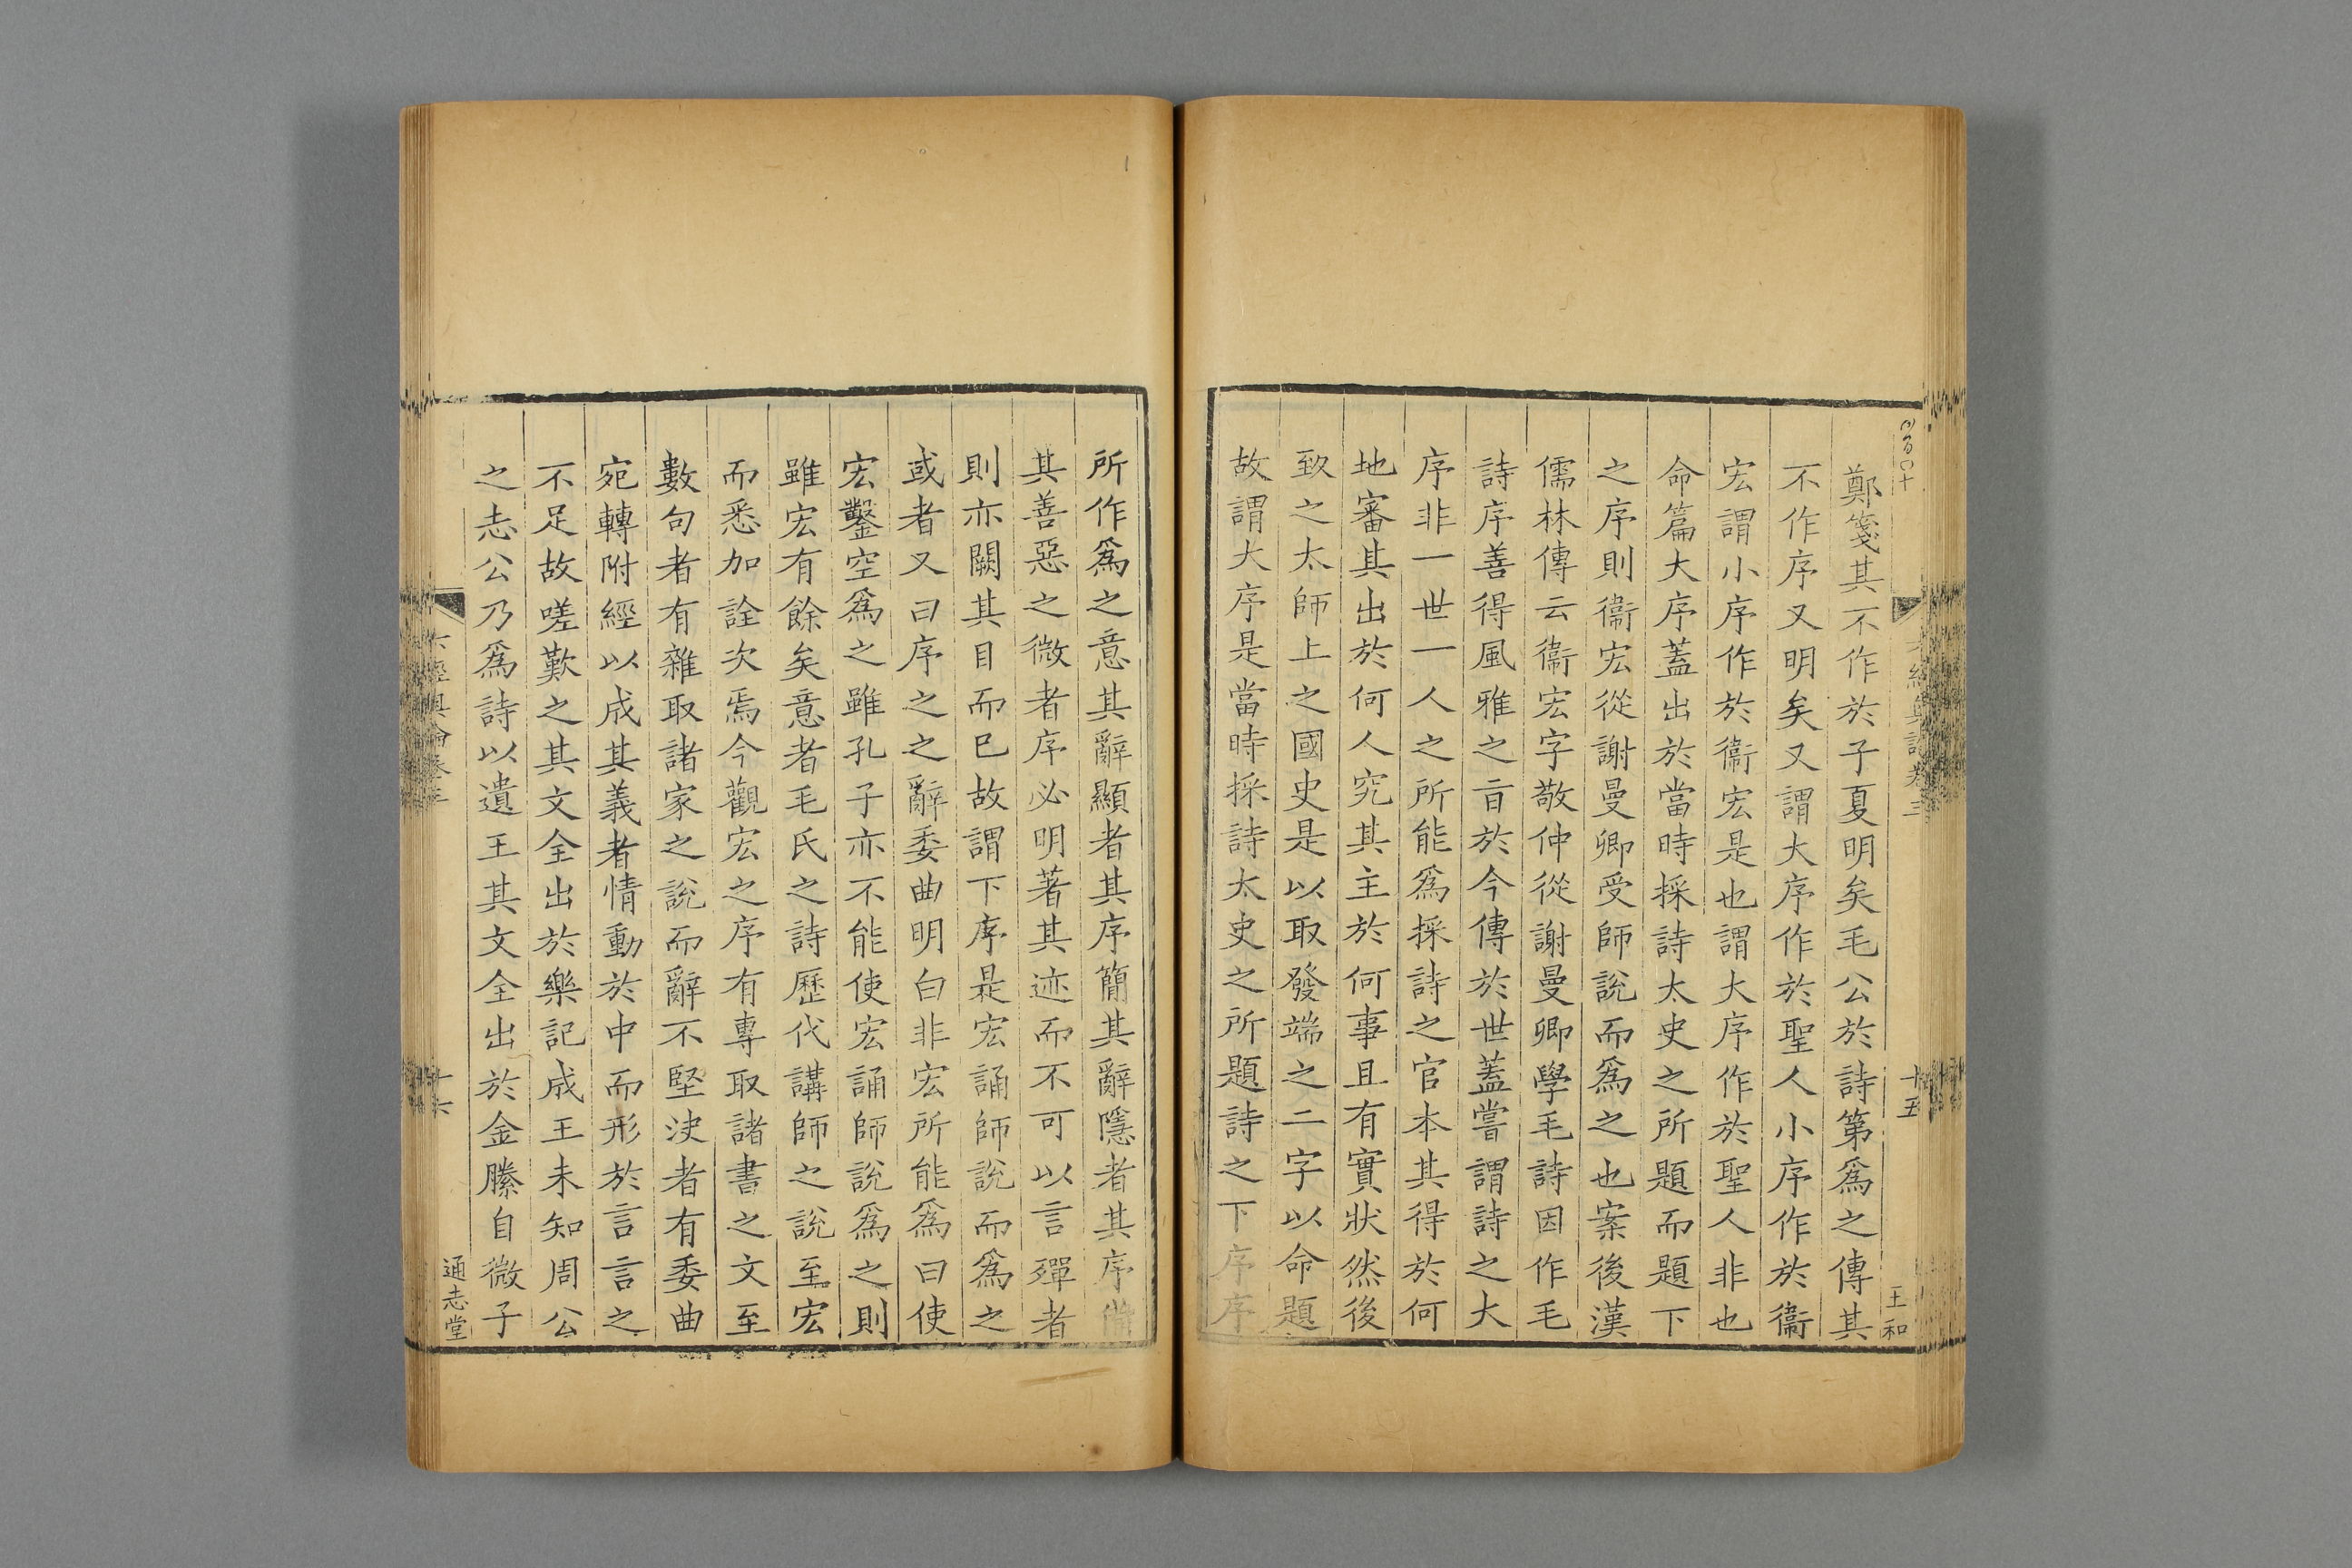 鄭箋其不作於子夏明矣毛公於詩第爲之傳其
不作序又明矣又謂大序作於聖人小序作於衞
宏謂小序作於衞宏是也謂大序作於聖人非也
命篇大序蓋出於當時採詩太史之所題而題下
之序則衞宏從謝曼卿受師說而爲之也案後漢
儒林傳云衞宏字敬仲從謝曼卿學毛詩因作毛
詩序善得風雅之旨於今傳於世蓋嘗謂詩之大
序非一世一人之所能爲採詩之官本其得於何
地審其出於何人究其主於何事且有實狀然後
致之太師上之國史是以取發端之二字以命題
故謂大序是當時採詩太史之所題詩之下序序
十五
王和
所作爲之意其辭顯者其序簡其辭隱者其序備
其善惡之微者序必明著其迹而不可以言殫者
則亦闕其目而已故謂下序是宏誦師說而爲之
或者又曰序之之辭委曲明白非宏所能爲曰使
宏鑿空爲之雖孔子亦不能使宏誦師說爲之則
雖宏有餘矣意者毛氏之詩歷代講師之說至宏
而悉加詮次焉今觀宏之序有專取諸書之文至
數句者有雜取諸家之說而辭不堅決者有委曲
宛轉附經以成其義者情動於中而形於言言之
不足故嗟歎之其文全出於樂記成王未知周公
之志公乃爲詩以遺王其文全出於金縢自微子
六經奧論卷三
十六
通志堂